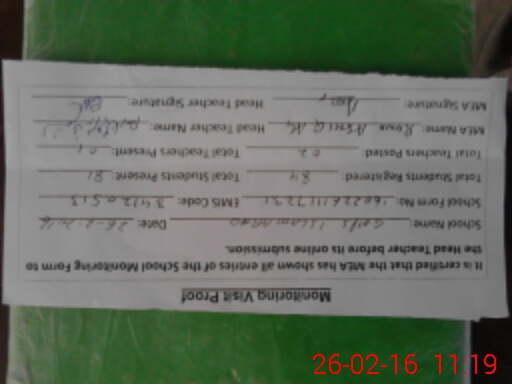 Monitoring Visit Proof
It is certified that the MEA has shown all entries of the School Monitoring Form to
the Head Teacher before its online submission.
School Name: GGPS Date: 26-2-2016
School Form No: EMIS Code: 34120513
Total Students Registered: 84 Total Students Present: 81
Total Teachers Posted: 02 Total Teachers Present: 01
MEA Name: Head Teacher Name:
MEA Signature: Head Teacher Signature:
26-02-16 11:19